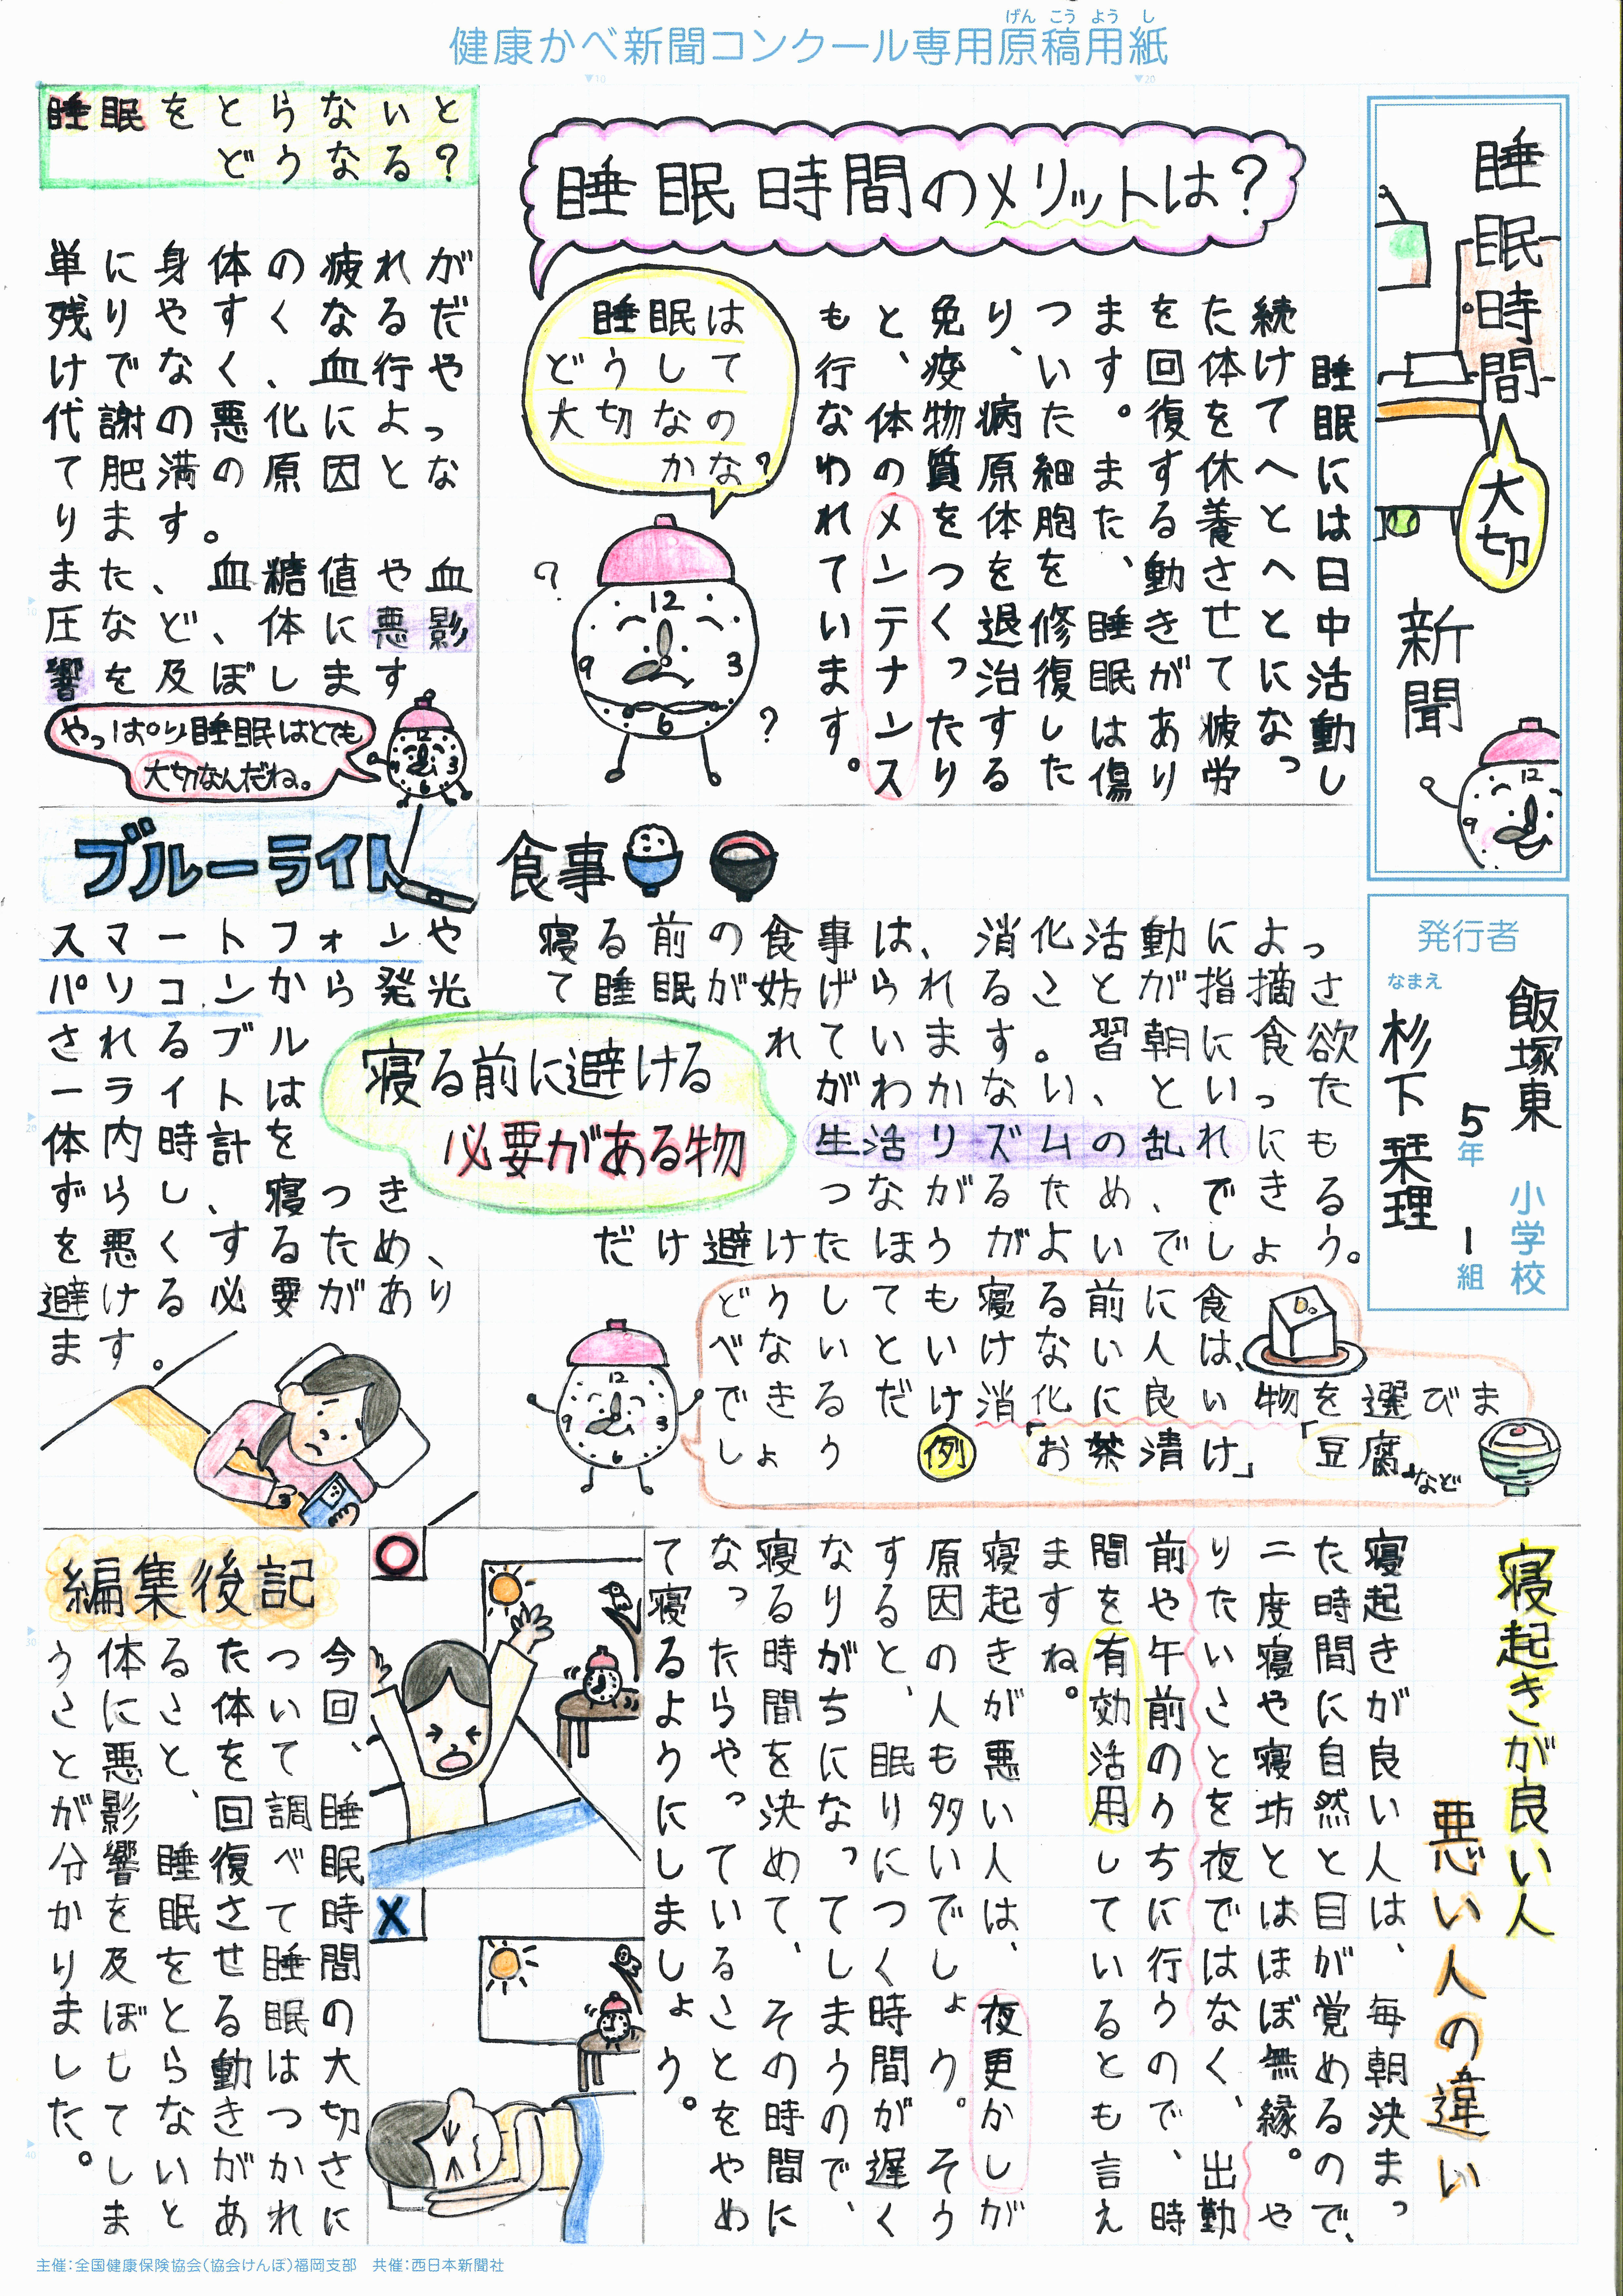 げんこうようし
健康かべ新聞コンクール専用原稿用紙
睡眠時間
大切
新聞
発行者
なまえ
飯塚東 小学校
5年 1組
杉下 栞理
睡眠時間のメリットは?
睡眠は
どうして
大切なの
かな?
睡眠には日中活動し
続けてへとへとになっ
た体を休養させて疲労
を回復する動きがあり
ます。また、睡眠は傷
ついた細胞を修復した
り、病原体を退治する
免疫物質をつくったり
と、体のメンテナンス
も行なわれています。
睡眠をとらないと
どうなる?
単に身体の疲れが
残りやすくなるだ
けでなく、血行や
代謝の悪化によっ
て肥満の原因とな
ります。
また、血糖値や血
圧など、体に悪影
響を及ぼします
やっぱり睡眠はとても
大切なんだね。
食事
寝る前の食事は、消化活動によっ
て睡眠が妨げられることが指摘さ
れています。習朝に食欲
がわかない、といった
生活リズムの乱れにも
つながるため、できる
だけ避けたほうがよいでしょう。
寝る前に避ける
必要がある物
どうしても寝る前に食
べないといけない人は、
できるだけ消化に良い物を選びま
しょう
例
「お茶漬け」「豆腐」など
ブルーライト
スマートフォンや
パソコンから発光
されるブル
ーライトは
体内時計を
ずらし、寝つき
を悪くするため、
避ける必要があり
ます。
寝起きが良い人
悪い人の違い
寝起きが良い人は、毎朝決まっ
た時間に自然と目が覚めるので、
二度寝や寝坊とはほぼ無縁。や
りたいことを夜ではなく、出勤
前や午前のうちに行うので、時
間を有効活用しているとも言え
ますね。
寝起きが悪い人は、夜更かしが
原因の人も多いでしょう。そう
すると、眠りにつく時間が遅く
なりがちになってしまうので、
寝る時間を決めて、その時間に
なったらやっていることをやめ
て寝るようにしましょう。
○
X
編集後記
今回、睡眠時間の大切さに
ついて調べて睡眠はつかれ
た体を回復させる動きがあ
ること、睡眠をとらないと
体に悪影響を及ぼしてしま
うことが分かりました。
主催:全国健康保険協会(協会けんぽ)福岡支部 共催:西日本新聞社